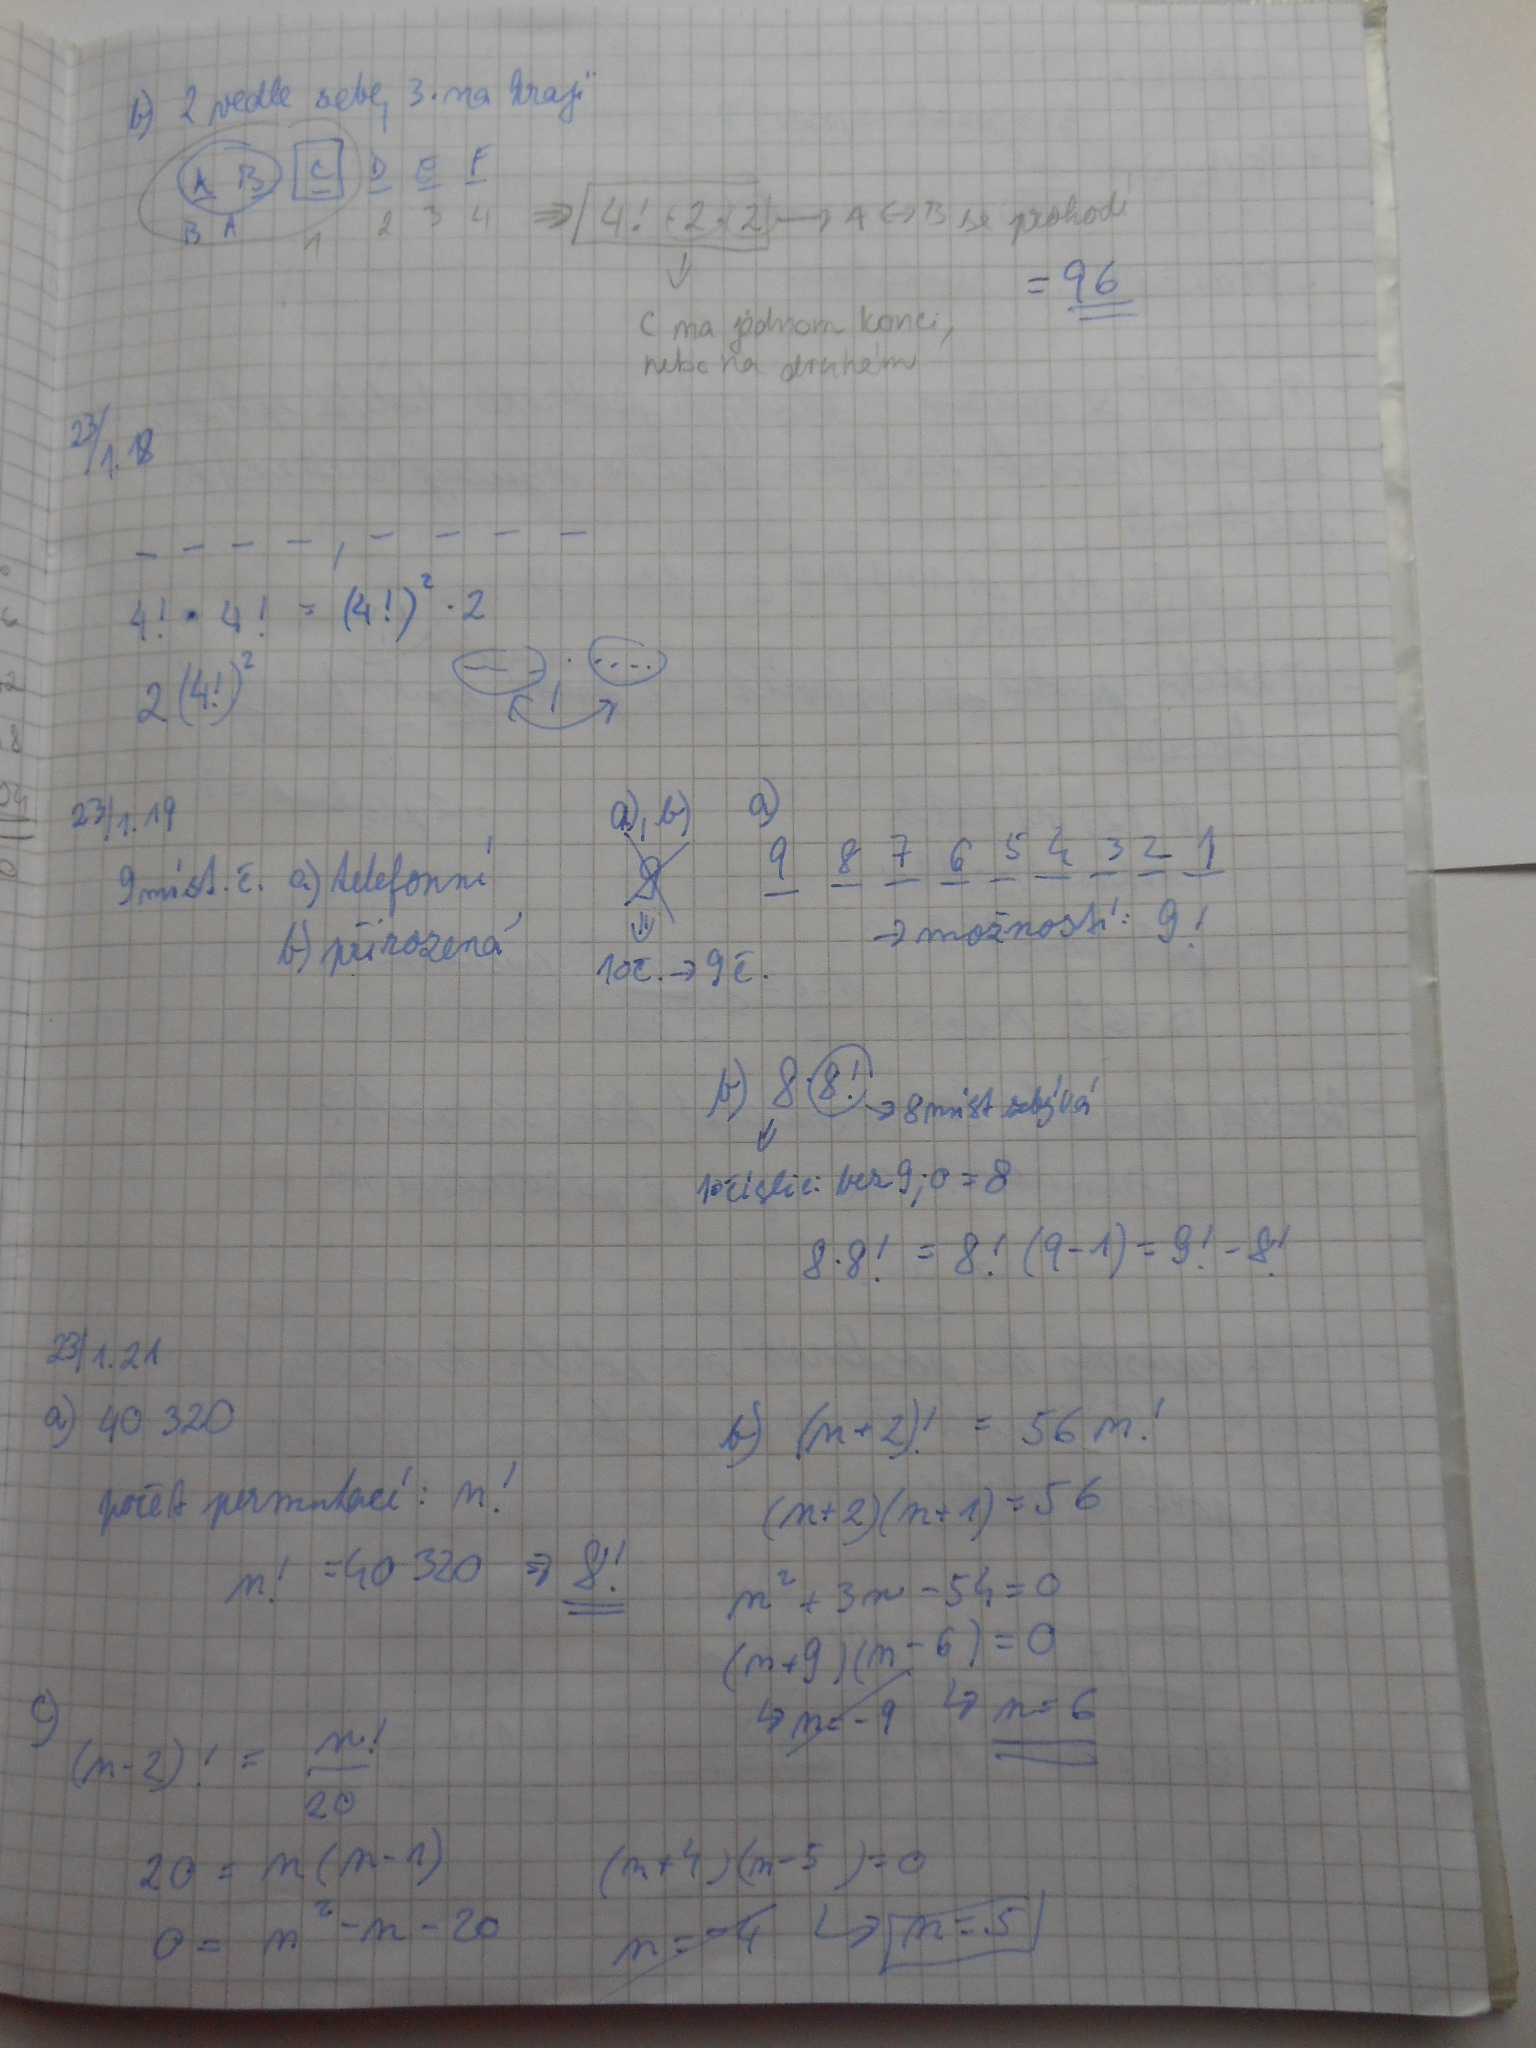 b) 2 vedle sebe, 3. na kraji
A B C D E F
B A 1 2 3 4 => 4! · 2 · 2 -> A <-> B se prohodí
= 96
C na jednom konci,
nebo na druhém
23/1.18
_ _ _ _ , _ _ _ _ _
4! · 4! = (4!)² · 2
2(4!)²
23/1.19
9 míst. č. a) telefonní
b) přirozená
a), b)
9
10č. -> 9č.
a)
9 8 7 6 5 4 3 2 1
-> možností: 9!
b) 8·8! -> 8 míst zbývá
10číslic: bez 9; 0 = 8
8·8! = 8! (9-1) = 9! - 8!
23/1.21
a) 40 320
počet permutací: n!
n! = 40 320 => 8!
b) (n+2)! = 56 n!
(n+2)(n+1) = 56
n² + 3n - 54 = 0
(n+9)(n-6) = 0
↳ n = -9 ↳ n = 6
c)
(n-2)! = n!/20
20 = n(n-1)
0 = n² - n - 20
(n+4)(n-5) = 0
n = -4 ↳ n = 5